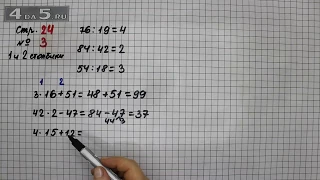 4DA5.RU
Стр. 24
№ 3
1 и 2 столбики
76:19=4
84:42=2
54:18=3
1 2
3·16+51=48+51=99
42·2-47=84-47=37
44 3
4·15+12=